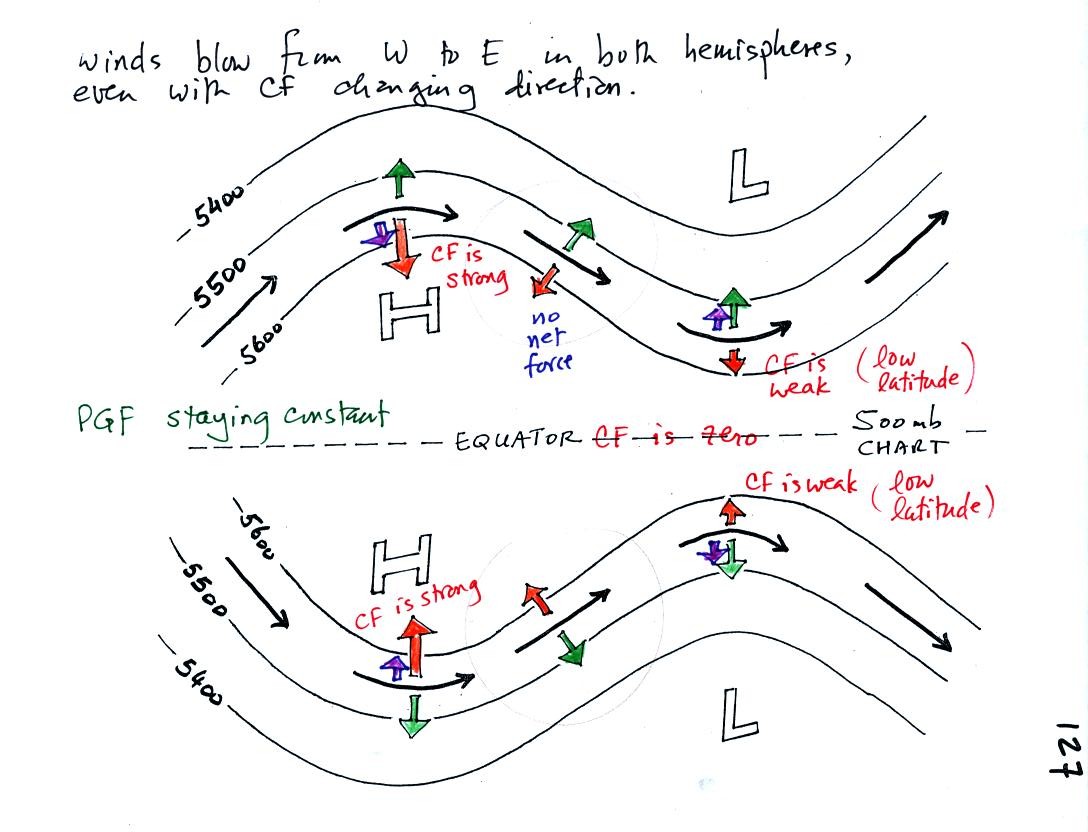 winds blow from W to E in both hemispheres,
even with CF changing direction.
5400
L
5500
CF is
strong
H
5600
no
net
force
CF is
weak
(low
latitude)
PGF staying constant
EQUATOR CF is zero
500 mb
CHART
CF is weak
(low
latitude)
5600
H
5500
CF is strong
5400
L
127